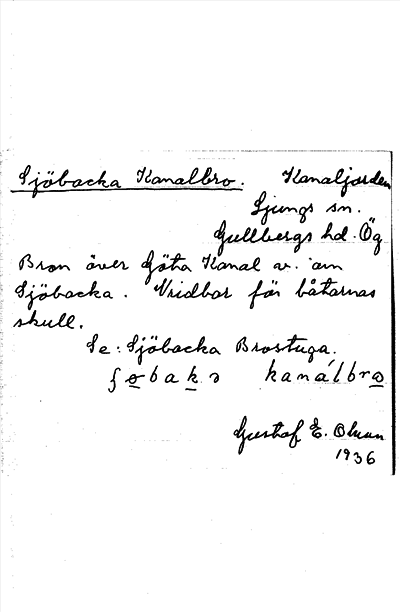 Sjöbacka Kanalbro. Kanaljorden
Ljungs sn.
Gullbergs hd. Ög
Bron över Göta Kanal v. om
Sjöbacka. Vridbar för båtarnas
skull.
Se: Sjöbacka Brostuga.
kanálbro
Gustaf E. Olsson
1936